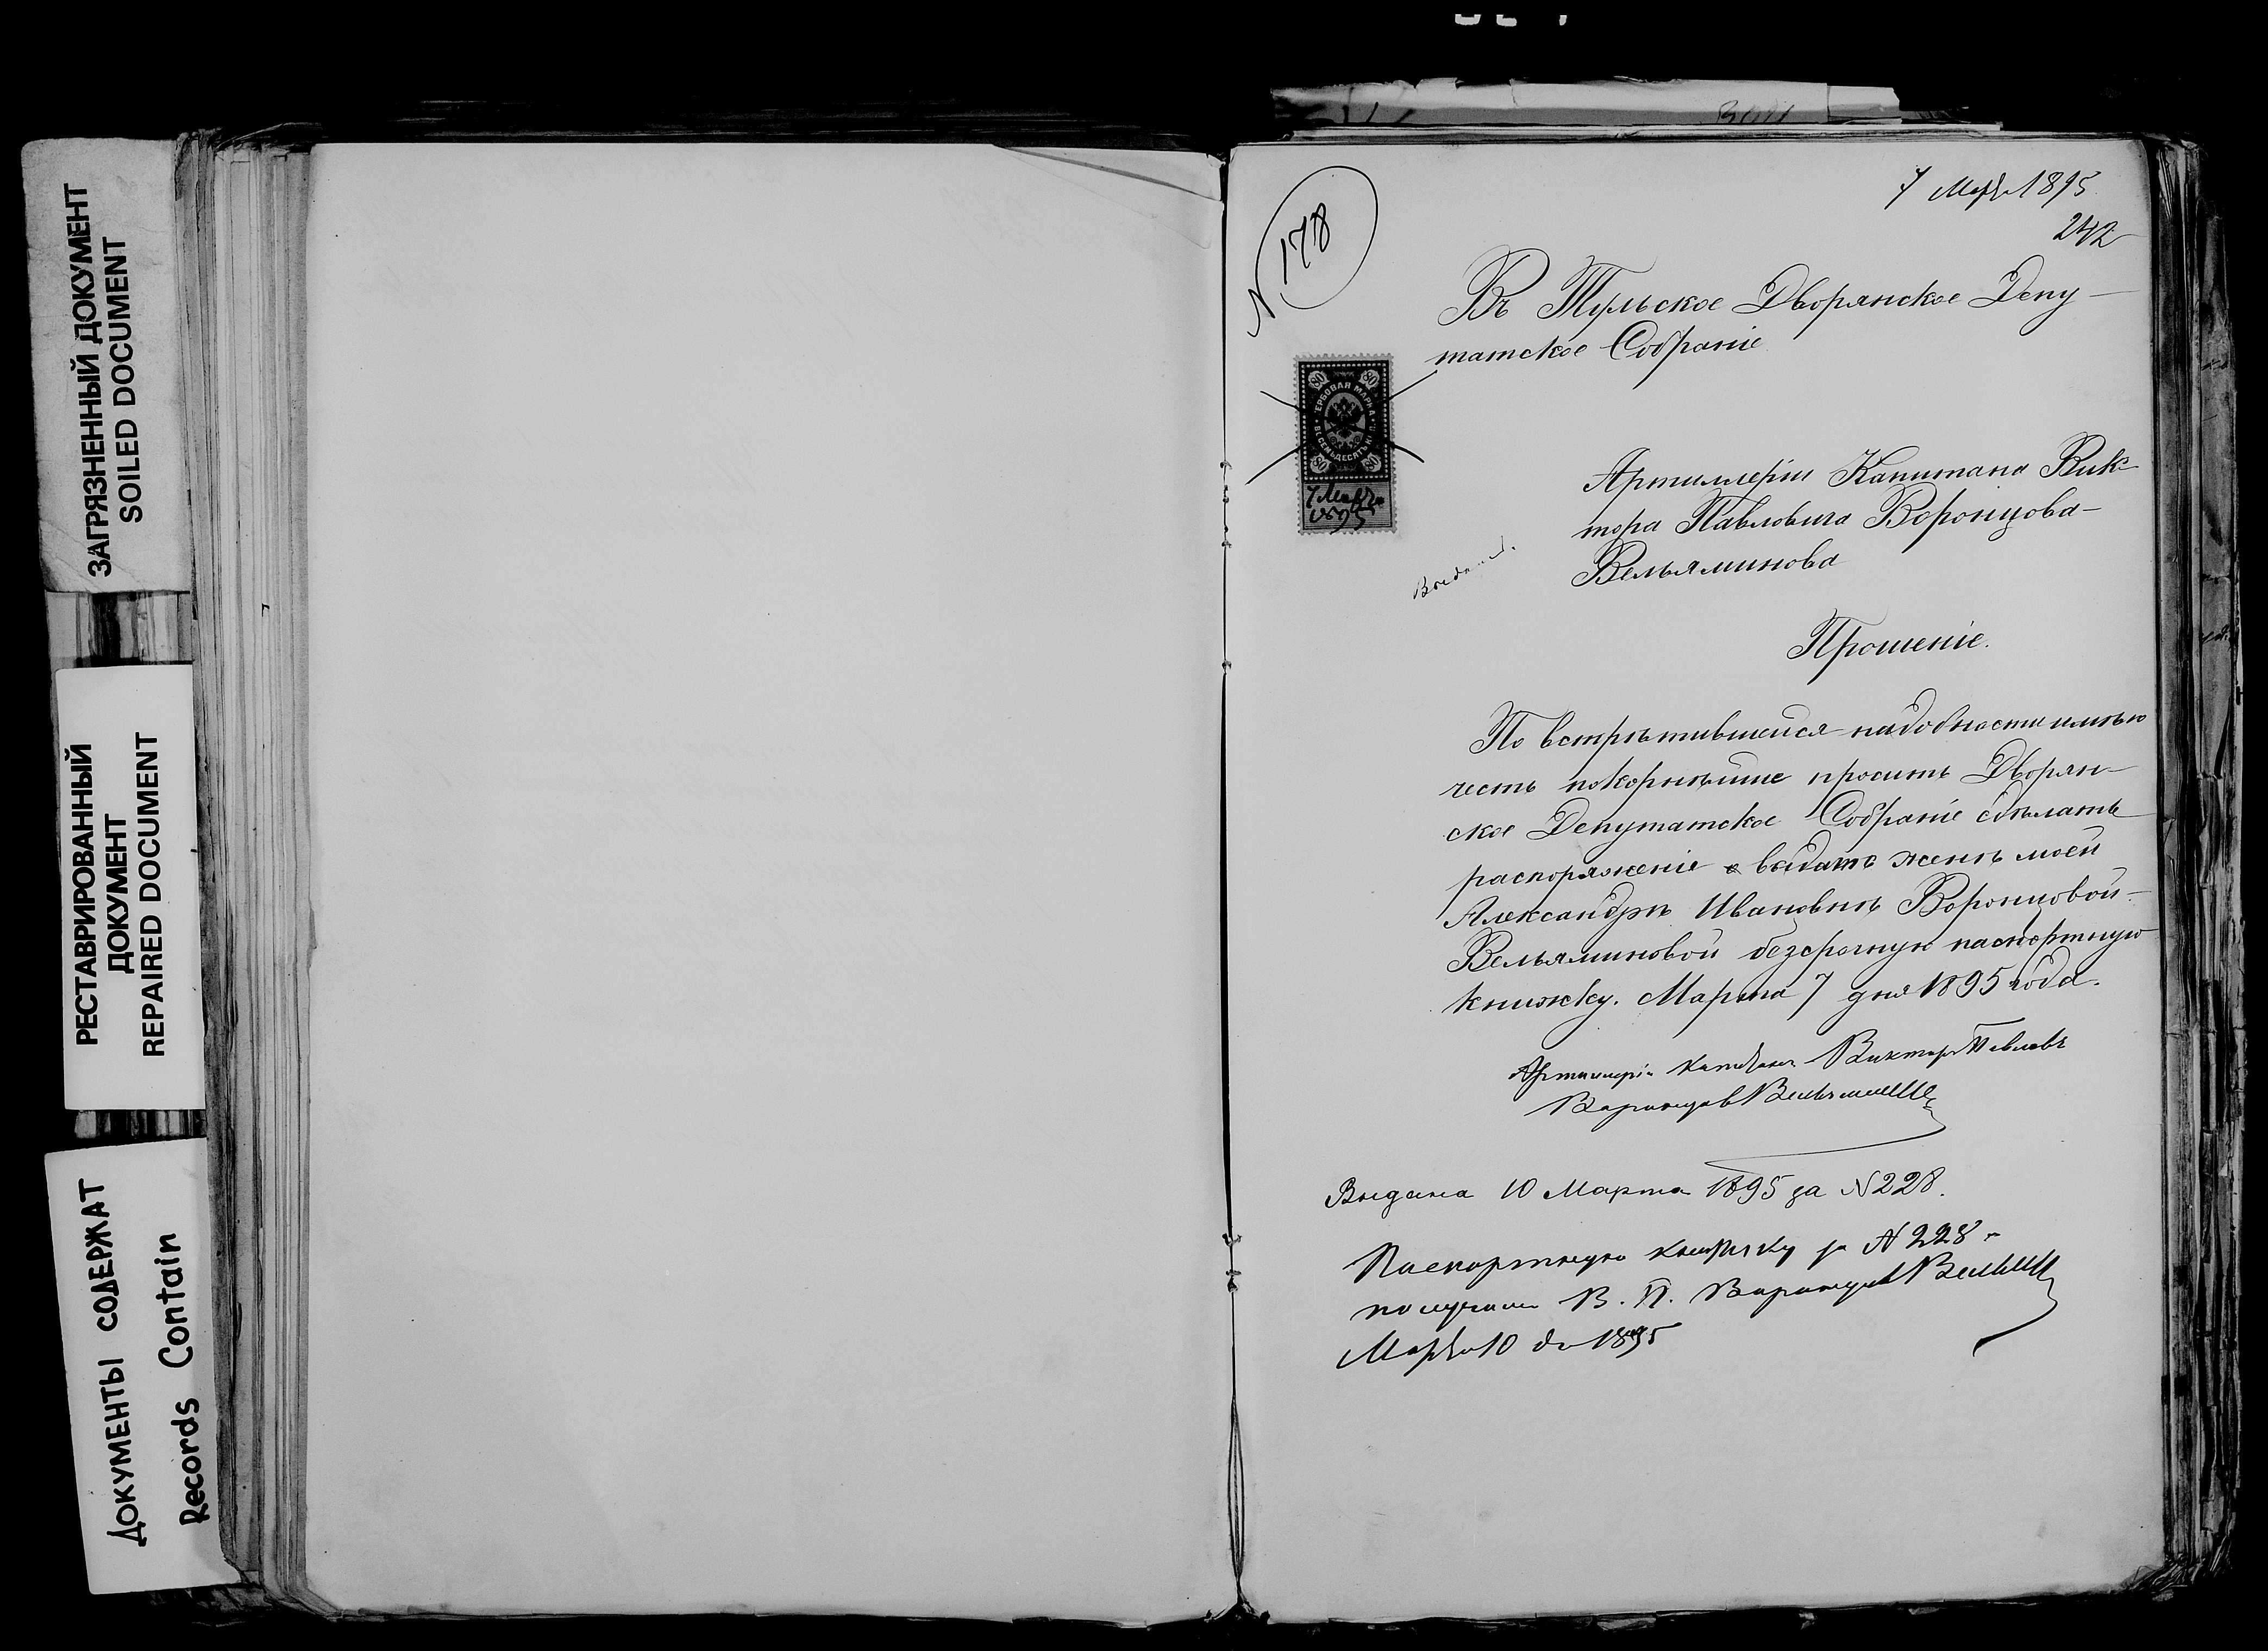 ЗАГРЯЗНЕННЫЙ ДОКУМЕНТ
SOILED DOCUMENT
РЕСТАВРИРОВАННЫЙ
ДОКУМЕНТ
REPAIRED DOCUMENT
ДОКУМЕНТЫ СОДЕРЖАТ
Records Contain
7 Марта 1895
242
N 178
Въ Тульское Дворянское Депу-
татское Собраніе
80 80
ЕРБОВАЯ МАРКА
ВОСЕМЬДЕСЯТЪ КОП.
80 80
7 Марта
1895
Артиллеріи Капитана Вик-
тора Павловича Воронцова-
Вельяминова
Прошеніе.
По встрѣтившейся надобности имѣю
честь покорнѣйше просить Дворян-
ское Депутатское Собраніе сдѣлать
распоряженіе выдать женѣ моей
Александрѣ Ивановнѣ Воронцовой-
Вельяминовой безсрочную паспортную
книжку. Марта 7 дня 1895 года.
Артиллеріи Капитанъ Викторъ Павловъ
Воронцовъ Вельяминовъ
Выдана 10 Марта 1895 за N 228.
Паспортную книжку за N 228
получилъ В. П. Воронцовъ Вельяминовъ
Марта 10 дня 1895